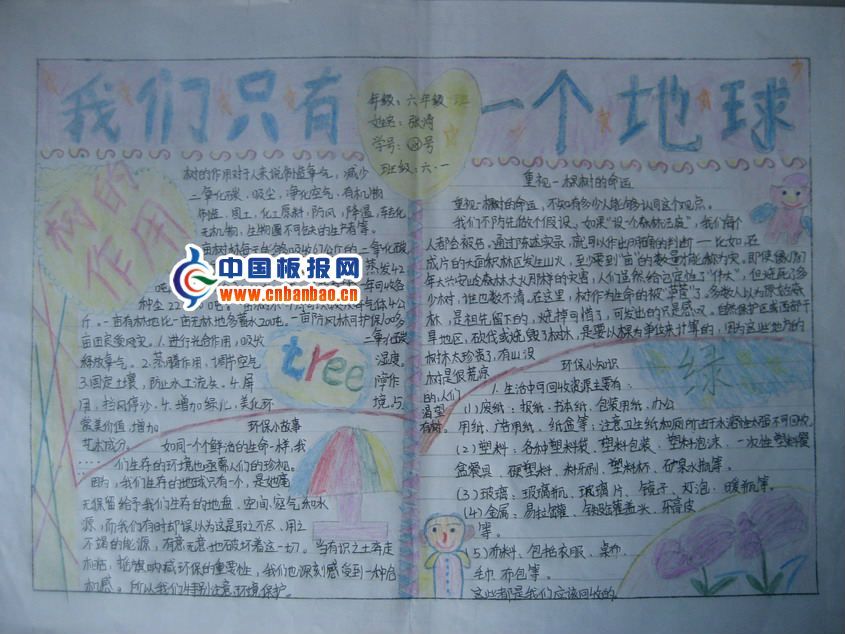 我们只有一个地球
年级：六年级
姓名：张涛
学号：号
班级：六·一
树的作用
树的作用对于人来说制造氧气，减少
二氧化碳，吸尘，净化空气，有机物
制造，固土，化工原料，防风，降温，转化
无机物，生物圈不可缺的生产者等。
亩树林每天能吸收67公斤的二氧化碳
中国板报网
www.cnbanbao.cn
斤。一亩有林地比一亩无林地多蓄水20吨。一亩防风林可护保100多
亩田免受风灾。1.进行光合作用，吸收二氧化碳
释放氧气。2.蒸腾作用，调节空气湿度。
3.固定土壤，防止水土流失。4.屏障作
用，挡风停沙。4.增加绿化，美化环境，与
审美价值，增加
艺术成分。
tree
环保小故事
如同一个个鲜活的生命一样，我
们生存的环境也亟需人们的珍视。
因为，我们生存的地球只有一个，是她毫
无保留给予我们生存的地盘、空间、空气和水
源，而我们有时却误以为这是取之不尽、用之
不竭的能源，有意无意地破坏着这一切。当有识之士奔走
相告，摇旗呐喊环保的重要性，我们也深刻感受到一种危
机感。所以我们特别注意环境保护。
重视一棵树的命运
重视一棵树的命运，不知有多少人能够认同这个观点。
我们不防先做个假设。如果"设一个森林法庭"，我们每个
人都会被告，通过陈述实录，就可以作出明确的判断——比如：在
成片的大面积林区发生山火，至少要到"亩"的数量才能称为灾，即使像1987
年大兴安岭森林大火那样的灾害，人们虽然给它定性了"伟大"，但烧死了多
少树，谁也数不清。在这里，树作为生命的被"草菅"了。多数人以为原始森
林，是祖先留下的，烧掉可惜了，可发出的只是感叹。自然保护区或西部干
旱地区，砍伐或烧毁了树木，是要以棵为单位来计算的，因为这些地方的
树木太珍贵了，有山没
树是很荒凉
的，人们
渴望
有树。
绿
环保小知识
1.生活中可回收资源主要有：
（1）废纸：报纸、书本纸、包装用纸、办公
用纸、广告用纸、纸盒等；注意卫生纸和厕所由于水溶性太强不可回收
（2）塑料：各种塑料袋、塑料包装、塑料泡沫、一次性塑料餐
盒餐具、硬塑料、料牙刷、塑料杯、矿泉水瓶等。
（3）玻璃：玻璃瓶、玻璃片、镜子、灯泡、暖瓶等。
（4）金属：易拉罐、铁皮罐盖头、牙膏皮
等。
（5）布料，包括衣服、桌布、
毛巾、布包等。
这些都是我们应该回收的。